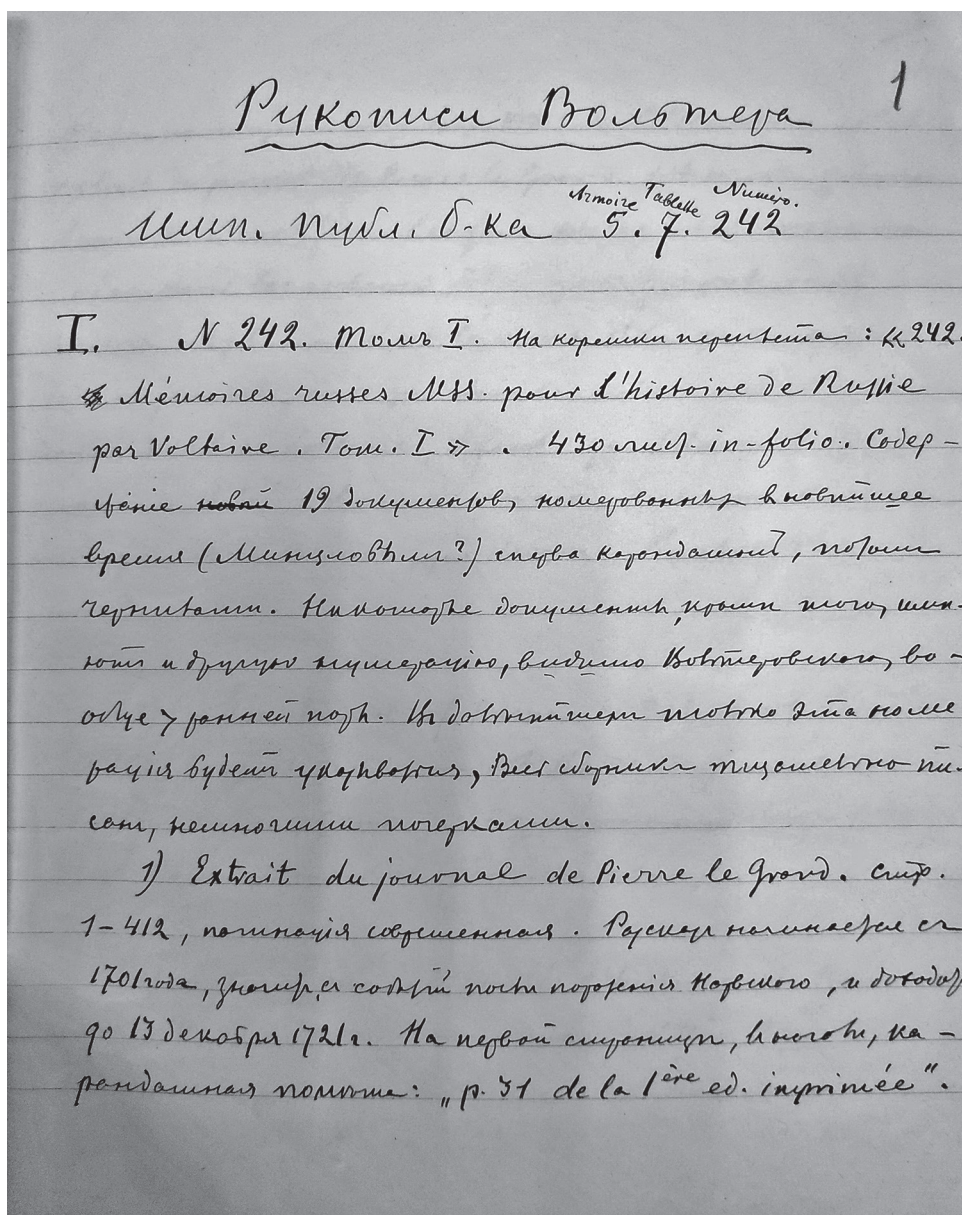 1
Рукописи Вольтера
Armoire Tablette Numéro.
Имп. публ. б-ка 5. 7. 242
I. N 242. Томъ I. На корешкѣ переплета: «242.
Mémoires russes MSS. pour l'histoire de Russie
par Voltaire. Tom. I». 430 лист. in-folio. Содер-
жаніе 19 документовъ, номерованныхъ въ новѣйшее
время (Минцловымъ?) сперва карандашемъ, потомъ
чернилами. Нѣкоторые документы, кромѣ того, имѣ-
ютъ и другую нумерацію, видимо Вольтеровскою, во-
обще ранней поры. Въ дальнѣйшемъ только эта номе
рація будетъ указываться. Весь сборникъ тщательно пи-
санъ, немногими почерками.
1) Extrait du journal de Pierre le Grand. стр.
1-412, пагинація современная. Разсказъ начинается съ
1701 года, значитъ, съ событій послѣ пораженія Нарвскаго, и доходитъ
до 13 декабря 1721 г. На первой страницѣ, внизу, ка-
рандашная помѣтка: „p. 31 de la 1ère ed. imprimée".